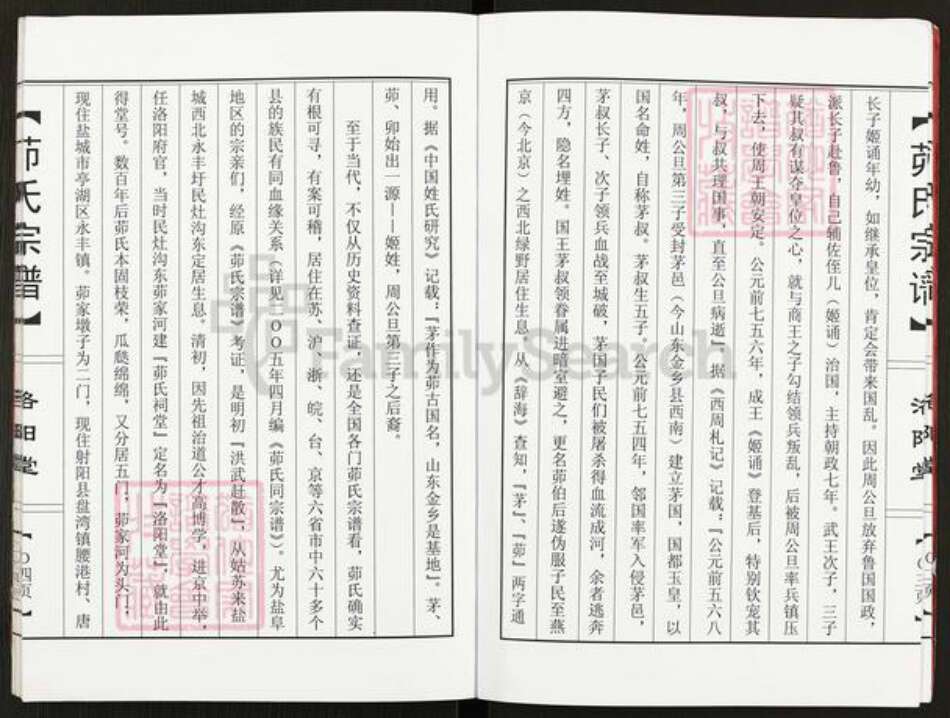 【茆氏宗谱】
洛阳堂
长子姬诵年幼，如继承皇位，肯定会带来国乱。因此周公旦放弃鲁国国政，
派长子赴鲁，自己辅佐侄儿（姬诵）治国，主持朝政七年。武王次子，三子
疑其叔有谋夺皇位之心，就与商王之子勾结领兵叛乱，后被周公旦率兵镇压
下去，使周王朝安定。公元前七五六年，成王《姬诵》登基后，特别钦宠其
叔，与叔共理国事，直至公旦病逝』，据《西周札记》记载：『公元前五六八
年，周公旦第三子受封茅邑（今山东金乡县西南）建立茅国，国都玉皇，以
国名命姓，自称茅叔。茅叔生五子，公元前七五四年，邻国率军入侵茅邑，
茅叔长子、次子领兵血战至城破，茅国子民们被屠杀得血流成河，余者逃奔
四方，隐名埋姓。国王茅叔领眷属进暗室避之，更名茆伯后遂伪服子民至燕
京（今北京）之西北绿野居住生息，从《辞海》查知，『茅』、『茆』两字通
用。据《中国姓氏研究》记载：『茅作为茆古国名，山东金乡是基地』。茅、
茆、卯始出一源——姬姓，周公旦第三子之后裔。
至于当代，不仅从历史资料查证，还是全国各门茆氏宗谱看，茆氏确实
有根可寻，有案可稽，居住在苏、沪、浙、皖、台、京等六省市中六十多个
县的族民有同血缘关系（详见二〇〇五年四月编《茆氏同宗谱》）。尤为盐阜
地区的宗亲们，经原《茆氏宗谱》考证，是明初『洪武赶散』，从姑苏来盐
城西北永丰圩民灶沟东定居生息。清初，因先祖治道公才高博学，进京中举，
任洛阳府官，当时民灶沟东茆家河建『茆氏祠堂』定名为『洛阳堂』，就由此
得堂号。数百年后茆氏本固枝荣，瓜瓞绵绵，又分居五门，茆家河为头门，
现住盐城市亭湖区永丰镇。茆家墩子为二门，现住射阳县盘湾镇腰港村、唐
【茆氏宗谱】
洛阳堂
【〇四页】
FamilySearch